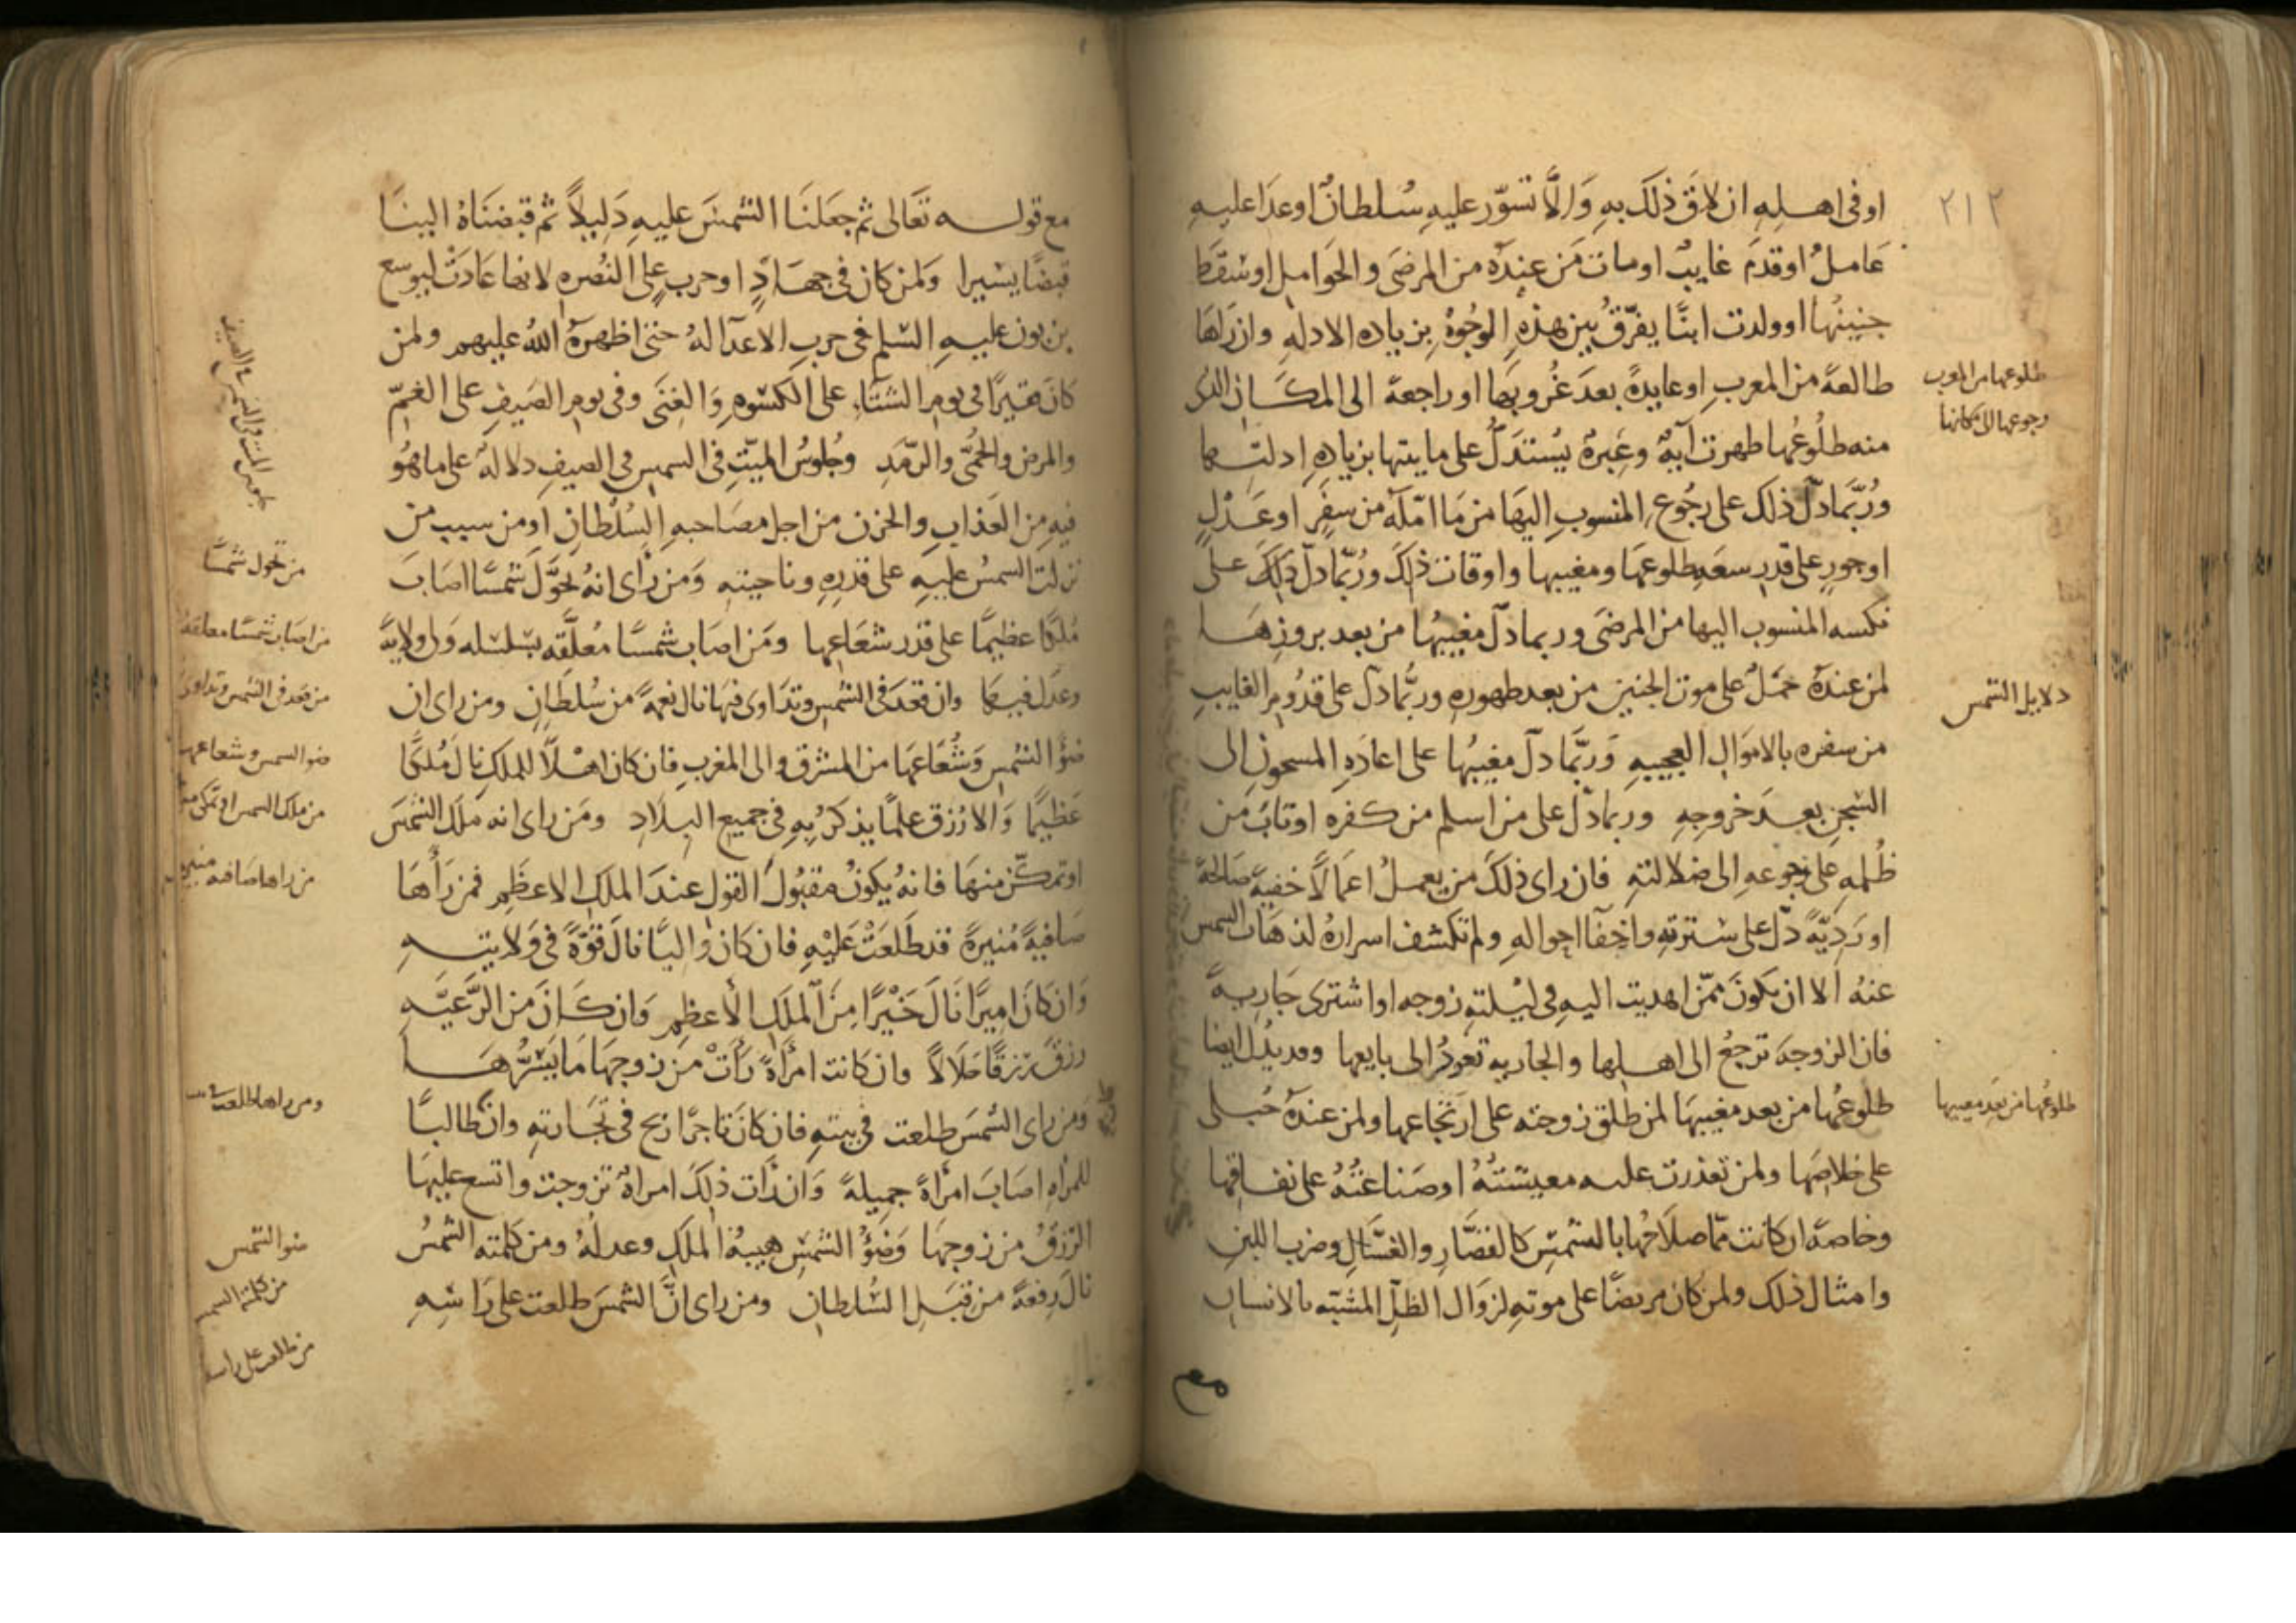 ٢١٢
اوفى اهله ان لاق ذلك به وَالَّا تسوّر عليه سُلطانٌ او عدا عليه
عَامل او قدمَ غايبٌ او مات مَن عنده من المرضى والحوامل او سقط
جنينُها او ولدت ابنًا يفرّقُ بين هذهِ الوجُوه بزياده الادله وان راها
طالعةً من المغرب او عايدةً بعدَ غُروبها او راجعة الى المكان الذى
منه طلُوعُها ظهرت آيةٌ وعِبرةٌ يُستدَلُّ على مايتها بزيادهِ ادلتها
ورُبَّمَا دلّ ذلك على رجُوعِ المنسوبِ اليهَا من مَا امّله من سفرٍ او عَدْلٍ
او جورٍ على قدر سعَد طلوعها ومغيبها واوقات ذلك ورُبّما دلّ ذلكَ على
نكسه المنسوب اليها من المرضَى وربما دلّ مغيبُها من بعد بروزها
لمن عندهٌ حَمْلٌ على موت الجنين من بعد ظهوره وربُّما دلّ على قدُومِ الغايبِ
من سفره بالاموَالِ العجيبه وَربَّما دلّ مغيبُها على اعادَهِ المسجونِ الى
السّجنِ بعدَ خروجهِ وربما دلّ على من اسلم من كفره او تابَ من
ظُلمهِ على رجوعهِ الى ضلالتهِ فان راى ذلكَ من يعملُ اعمالًا خفيةً صَالحةً
او ردِيّةً دلّ على سترتهِ واخفآ احوالهِ ولم تكشف اسرارهُ لذهَاب الشمس
عنهُ الا ان يكونَ ممّن اهديت اليهِ فى ليْلتهِ زوجه او اشترى جَاريهً
فان الزوجةَ ترجعُ الى اهلها والجاريه تعودُ الى بايعها وقد يدُل ايضا
طلُوعُها من بعد مغيبهَا لمن طلق زوجته على ارتجاعها ولمن عندهُ حُبلى
على خلاصها ولمن تعذرت عليه معيشتُهُ او صَناعتُهُ على نفاقها
وخاصةً ان كانت ممّا صلَاحُها بالشمسِ كالقصّارِ والغسّالِ وضرب اللبنِ
وامثال ذلك ولمن كان مريضًا على موتهِ لزوَال الظلّ المشبّه بالانسان
مع
طلوعها من المغرب
رجوعها الى مكانها
دلايل الشمس
طلوعُها من بَعد مغيبها
مع قوله تَعَالى ثم جعَلنَا الشمسَ عليهِ دَليلاً ثم قبضنَاهُ الينَا
قبضًا يسيرا وَلمن كان فى جهَادٍ او حربٍ على النُصره لانها عَادَتْ ليوسع
بن نون عليه السَّلم فى حربِ الاعدآ لهُ حتى اظهرهُ اللهُ عليهم ولمن
كانَ فقيرًا فى يومِ الشتآءِ على الكسْوهِ وَالغِنَى وفى يوم الصَيفِ على الغمّ
والمرض والحُمَّى والرّمَدِ وجُلوسُ الميّتِ فى الشمس فى الصيفِ دلالهٌ على ما هوُ
فيه مِن العذابِ والحزن من اجل مصَاحبهِ السُلْطانِ او من سبب من
نزلت الشمسُ عليهِ على قدرهِ وناحيتهِ وَمن رأى انهُ تحوَّلَ شمسًا اصَابَ
مُلكًا عظيمًا على قدر شعَاعِها ومَن اصَاب شمسًا معُلَّقه بسَلسَله وَلى ولايةً
وعدَل فيها وان قعَدَ فى الشمس وتدَاوى فيهَا نال نعمةً من سُلطَانٍ ومن راى ان
ضوْءُ الشمس وَشُعَاعَها من المشرق والى المغربِ فان كان اهلاً للملكِ نال مُلكًا
عَظيمًا وَالا رُزق علمًا يذكَرُ بهِ فى جميع البلادِ ومَن راى انه ملَك الشمسَ
او تمكّن منهَا فانهُ يكونُ مقبُولَ القول عندَ الملكِ الاعظمِ فمن رَأهَا
صَافيةً مُنيرةً قد طَلعَتْ عَليْهِ فان كان وَاليًا نالَ قوّةً فى وَلايته
وَان كانَ اميرًا نَالَ خَيْرًا مِنَ الملَكِ الأعظمِ وَان كَانَ من الرَّعيَّه
رزقَ رزقًا حَلَالاً وان كانت امرأةً رَأتْ من زوجهَا مَا يَسُرُّهَا
وَمن راى الشمسَ طلعت فى بيتهِ فان كانَ تاجرًا ربح فى تجَارتهِ وان طالبًا
للمرأهِ اصَابَ امرأةً جميلةً وَان رَأت ذلكَ امراةٌ تزوجت واتسع عليهَا
الرزقُ من زوجهَا وَضوْءُ الشمسِ هيبهُ الملَكِ وعدلهُ ومن كلمته الشمسُ
نالَ رفعةً من قبَلِ السُّلطان ومن راى انَّ الشمسَ طلعت على رَاسِهِ
جلوس الميت فى الشمس فى الصيف
من تحول شمسًا
من اصَاب شمسًا معلقة
من قعد فى الشمس وتداوى
ضو الشمس وشعاعها
من ملك الشمس او تمكن منها
من راها صَافيه منيره
ومن راها طلعت
ضو الشمس
من كلمته الشمس
من طلعت على راسه